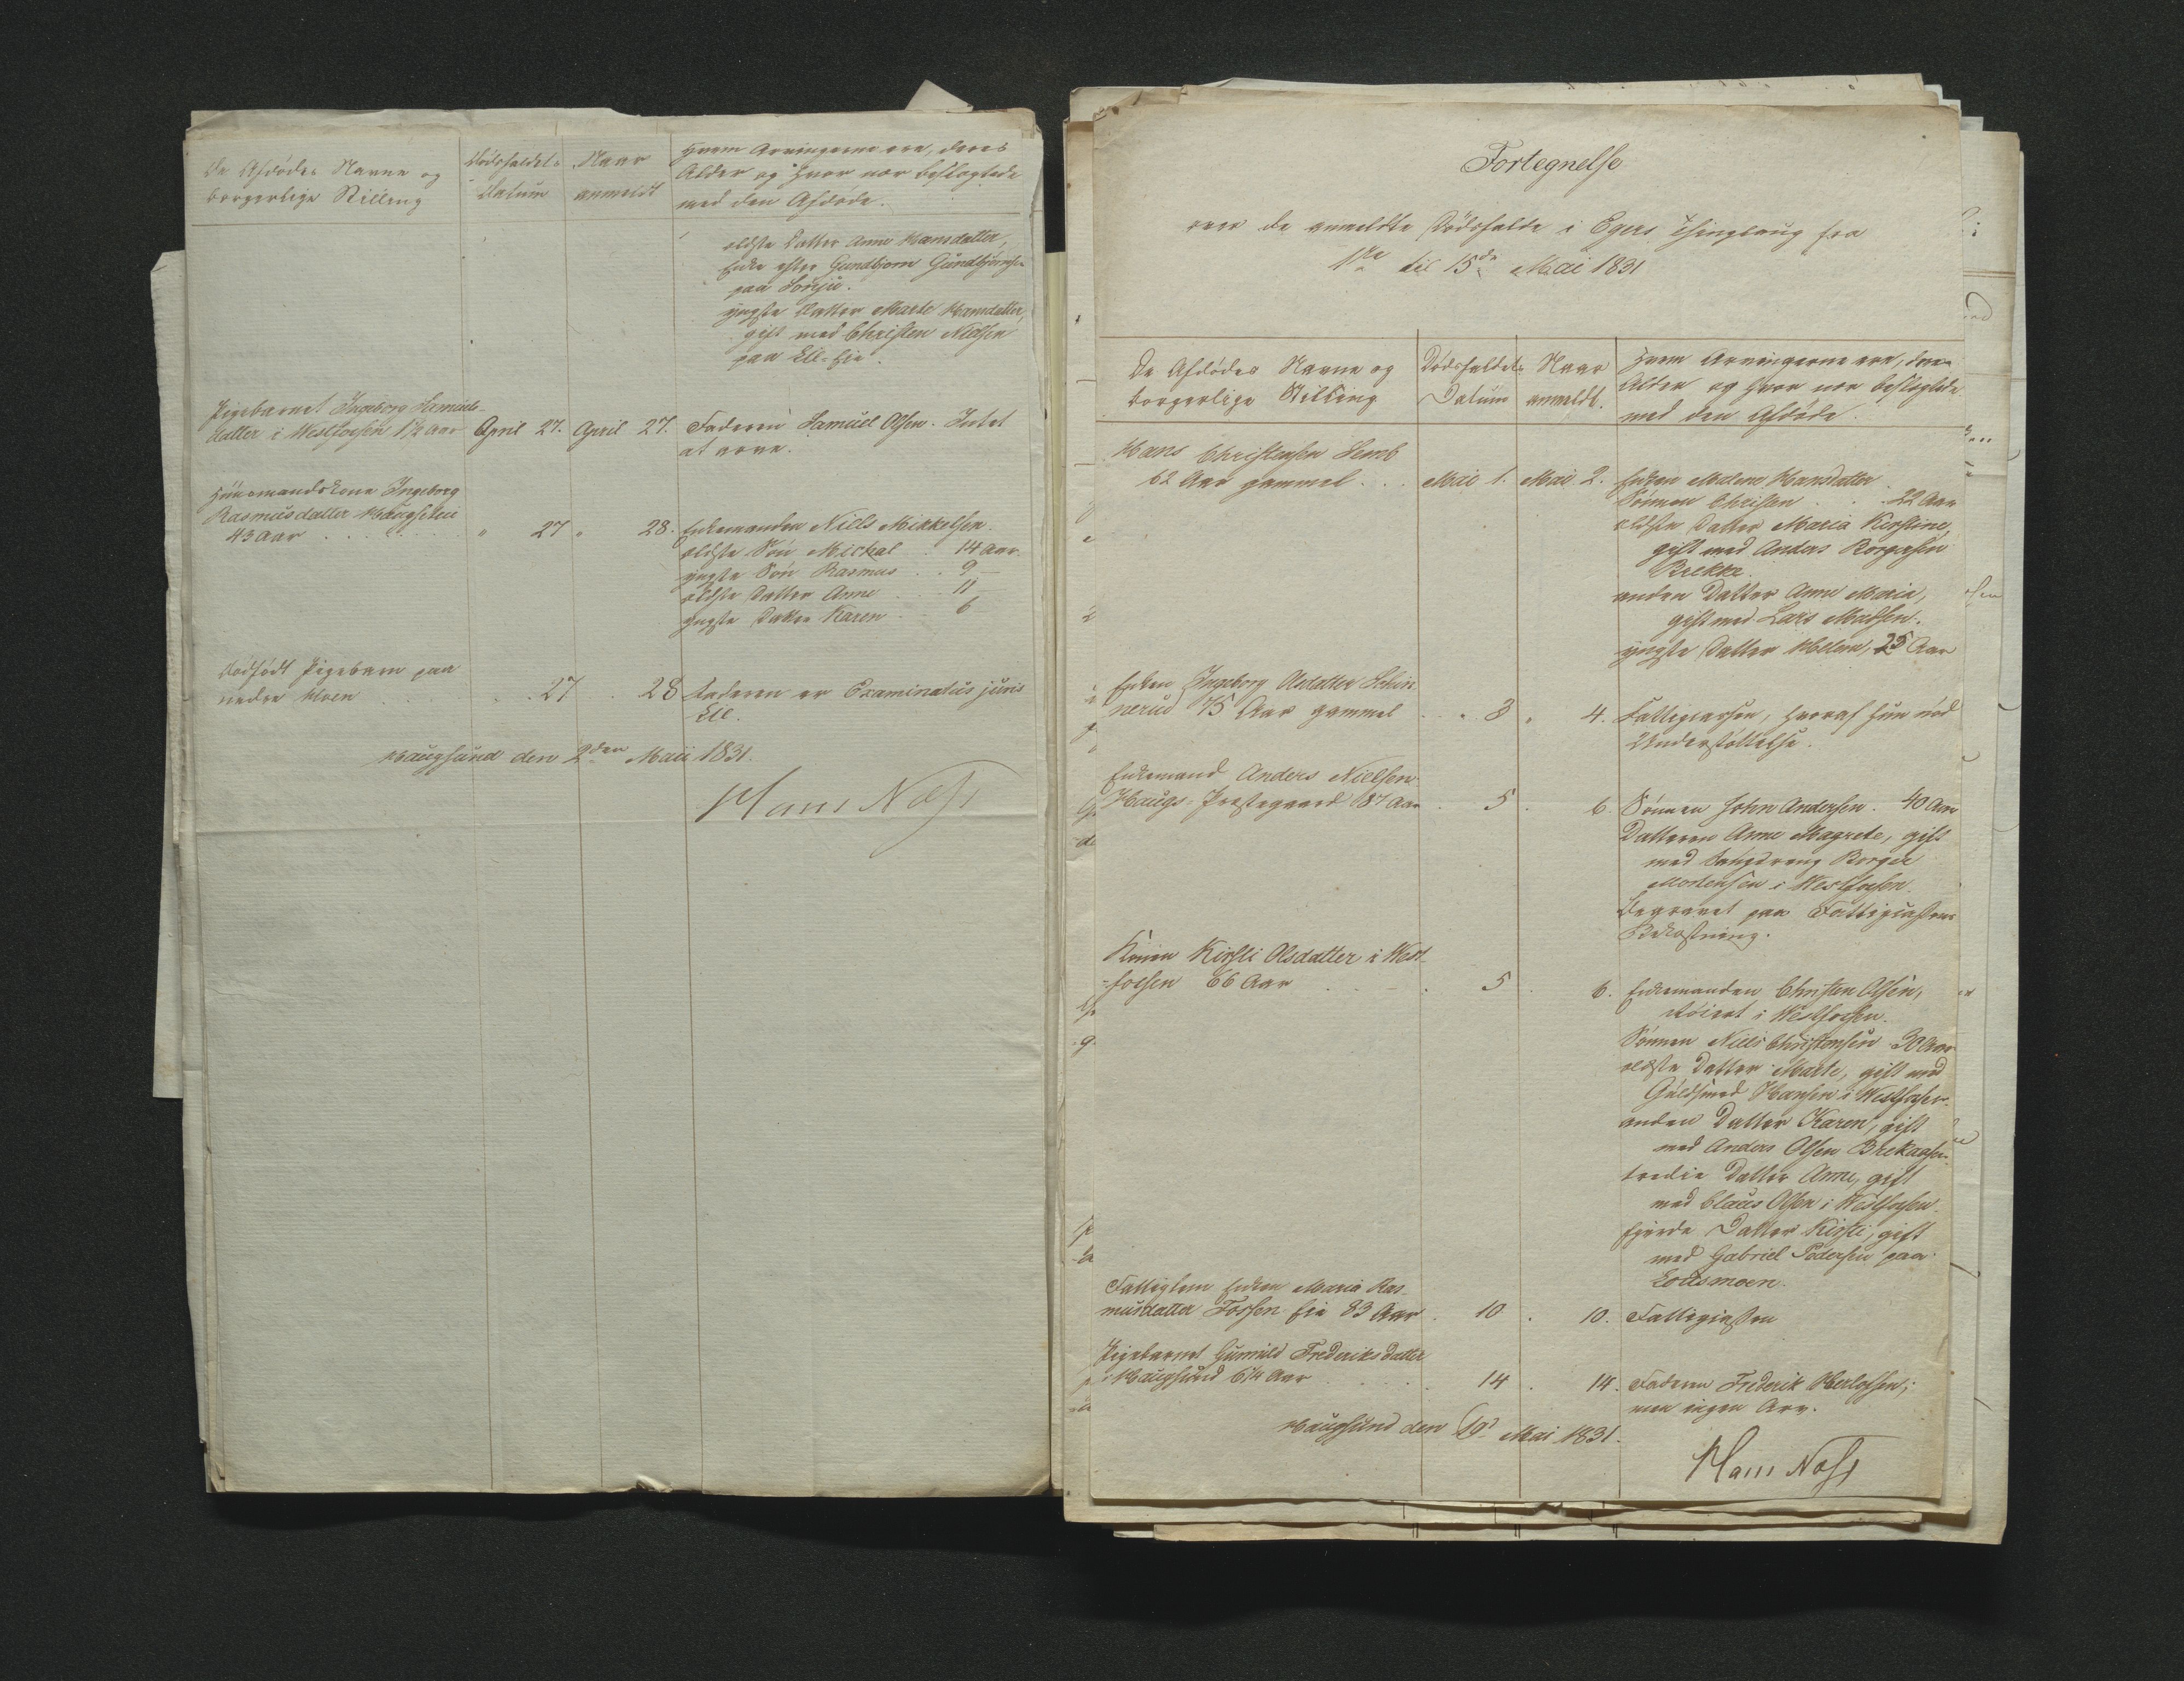 De Afdødes Navne og
borgerlige Stilling
Dødsfaldets
Datum
Naar
anmeldt
Hvem Arvingerne ere, deres
Alder og hvor nær beslægtede
med den Afdøde.
ældste Datter Anne Hansdatter,
Enke efter Gundbjørn Gundbjørnsen
paa
yngste Datter Marte Hansdatter,
gift med Christen Nielsen
paa Eie.
Pigebarnet Ingeborg Samuels-
datter i Westfossen 1½ Aar
April 27. April 27. Faderen Samuel Olsen. Intet
at arve.
Huusmandskone Ingeborg
Rasmusdatter
43 Aar . . . „ 27 „ 28. Enkemanden Niels Mikkelsen.
ældste Søn Mickal . 14 Aar.
yngste Søn Rasmus . . 9 —
ældste Datter Anne . . 11 —
yngste Datter Karen . . 6
Dødfødt Pigebarn paa
nedre Hoen . . . 27 . 28 Faderen er Examinatus juris
Haugsund den 2den Maii 1831.
Hans Næss
Fortegnelse
over de anmeldte Dødsfalde i Egers Thinglaug fra
1ste til 15de Mai 1831
De Afdødes Navne og
borgerlige Stilling
Dødsfaldets
Datum
Naar
anmeldt.
Hvem Arvingerne ere, deres
Alder og hvor nær beslægtede
med den Afdøde.
Hans Christensen Semb
62 Aar gammel . . . Mai 1. Mai 2. Enken Malene Hansdatter
Sønnen Christen . . . 22 Aar
ældste Datter Maria Kirstine,
gift med Anders Borgersen
anden Datter Anne Maria,
gift med Lars Madsen.
yngste Datter Helene, 25 Aar
Enken Ingeborg
75 Aar gammel . . . 3 „ 4. Fattigcassen, hvoraf hun nød
Understøttelse.
Enkemand Anders Nielsen
Haugs-Prestegaard 87 Aar . 5 . 6. Sønnen John Andersen . 40 Aar
Datteren Anne Magrete, gift
med Borger
Mortensen i Westfossen.
Begravet paa Fattigcassens
Bekostning.
Konen Kirsti Olsdatter i West-
-fossen 66 Aar . . . 5 . 6. Enkemanden Christen Olsen,
i Westfossen.
Sønnen Niels Christensen 30 Aar
ældste Datter Marte, gift med
Guldsmed Hansen i Westfossen.
anden Datter Karen, gift
med Anders Olsen
tredie Datter Anne, gift
med Claus Olsen i Westfossen.
fjerde Datter Kirsti, gift
med Gabriel Pedersen paa
Fattiglem Enken Maria Ras-
musdatter Fossen Eie 83 Aar . 10 . 10. Fattigcassen
Pigebarnet Gunnild Frederiksdatter
i Haugsund 6¼ Aar . . . 14 . 14. Faderen Frederik
men ingen Arv.
Haugsund den 19d Mai 1831.
Hans Næss